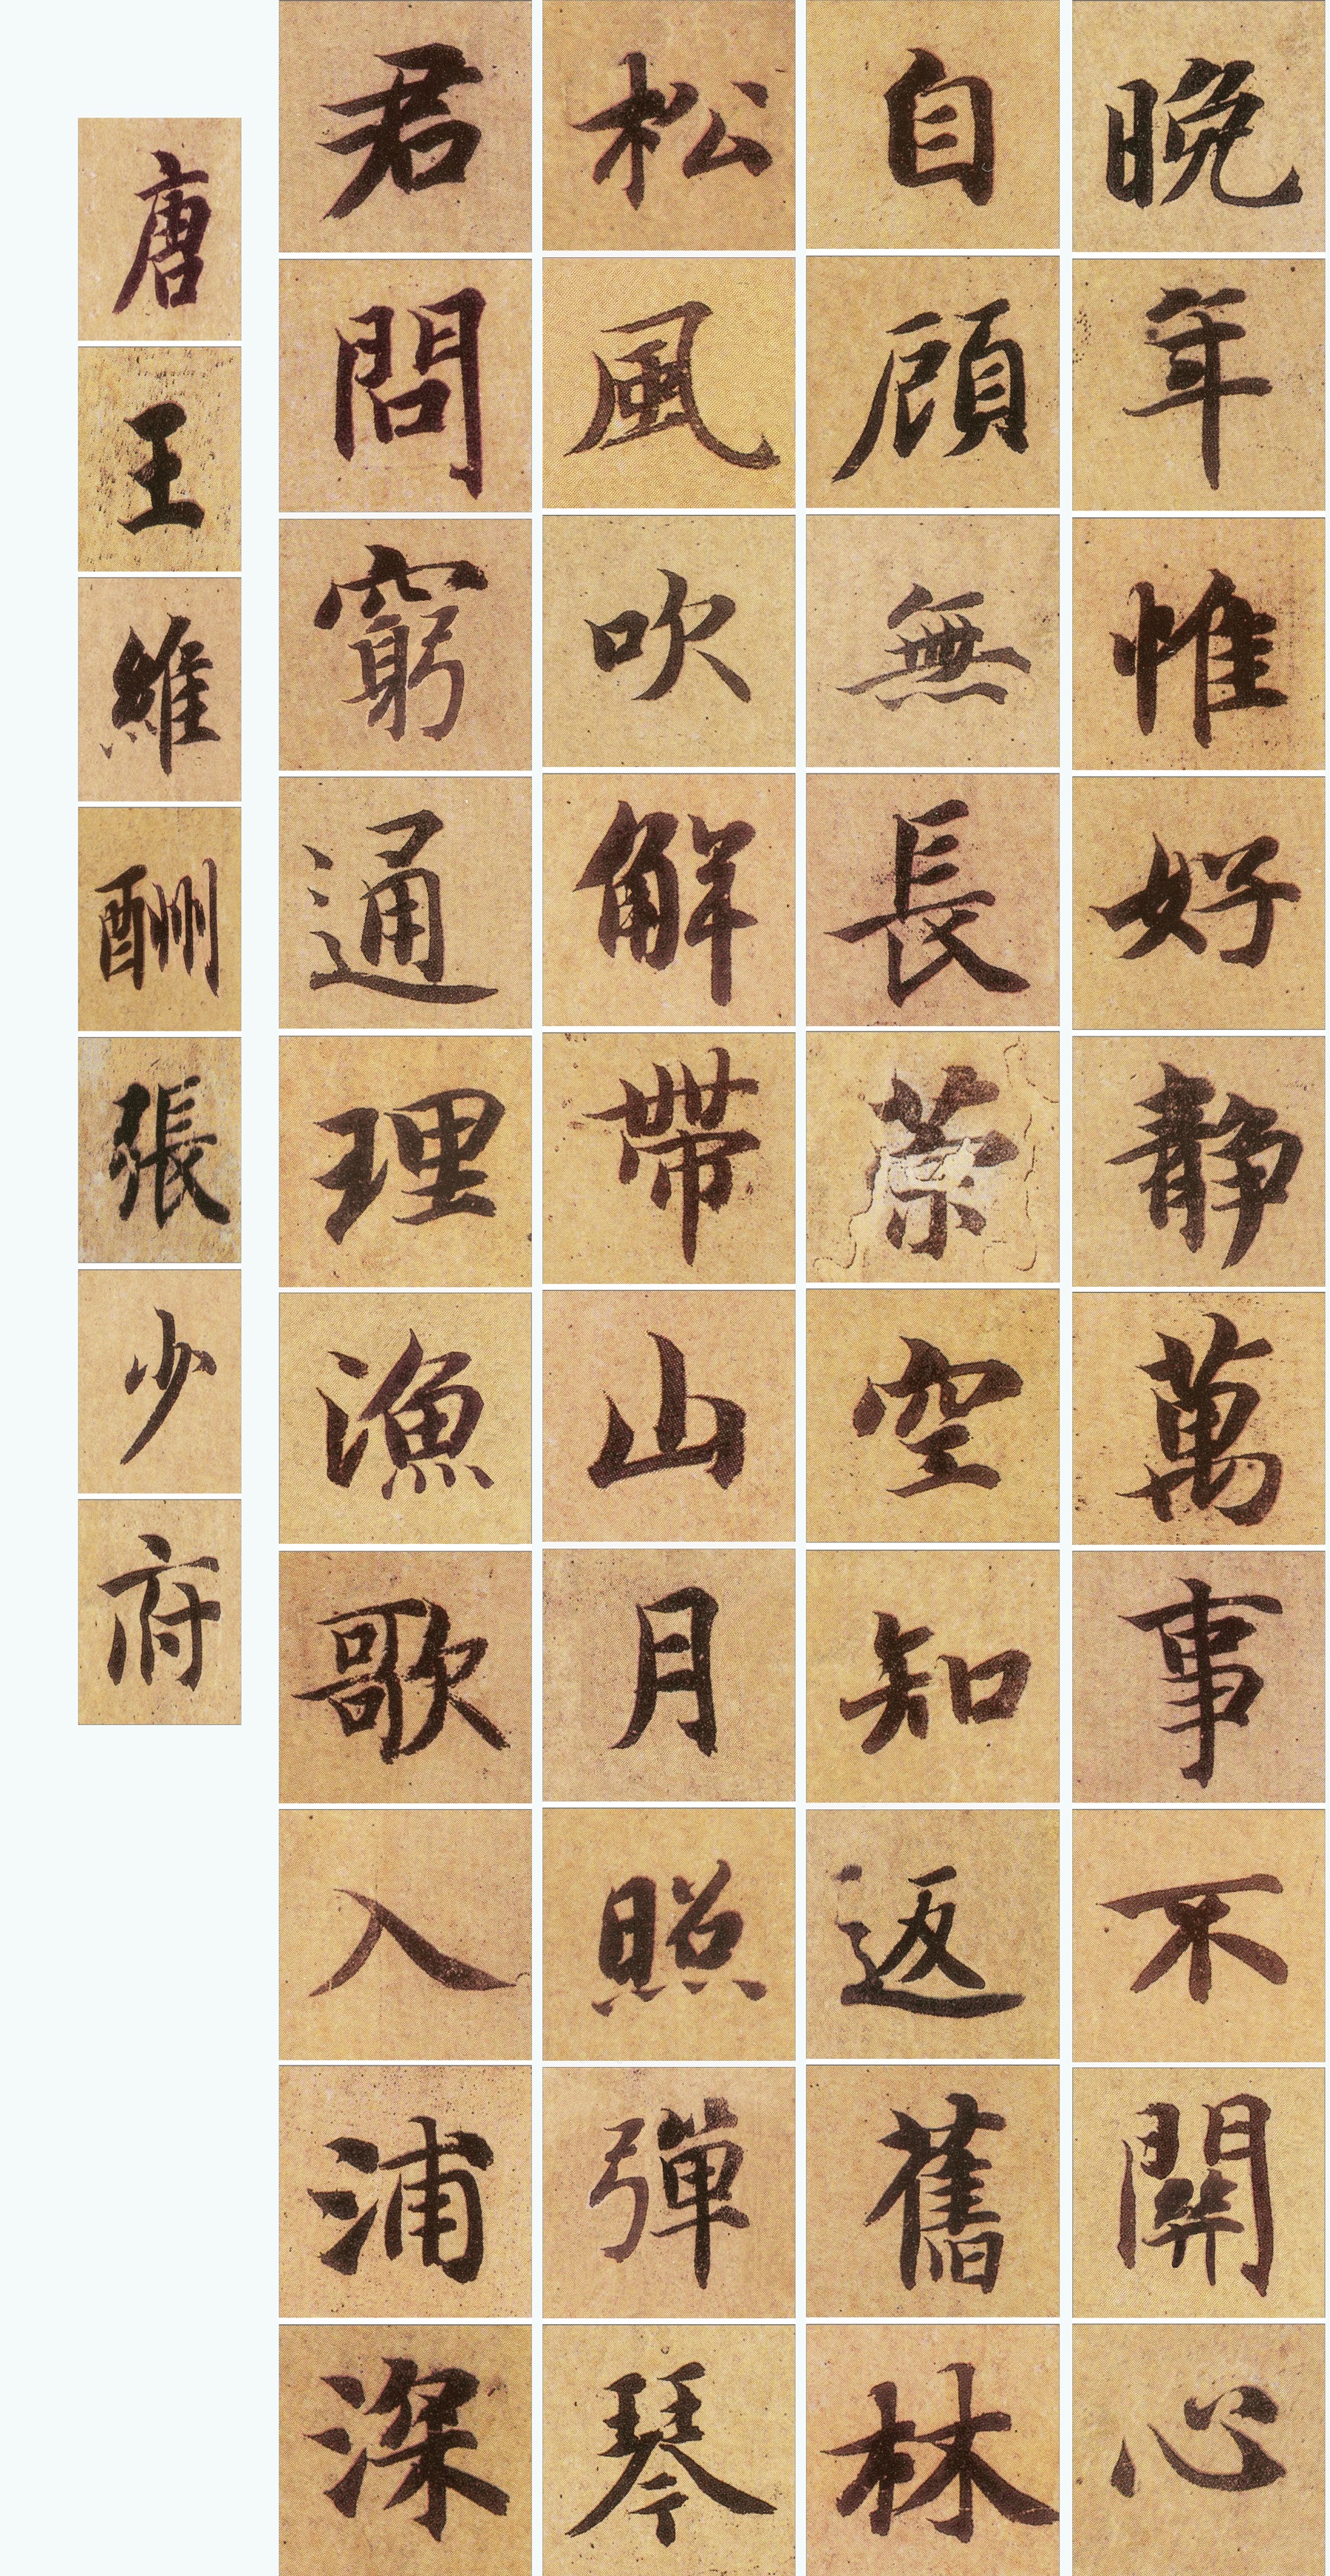 晚年惟好静萬事不關心
自顧無長策空知返舊林
松風吹解帶山月照彈琴
君問窮通理漁歌入浦深
唐王維酬張少府